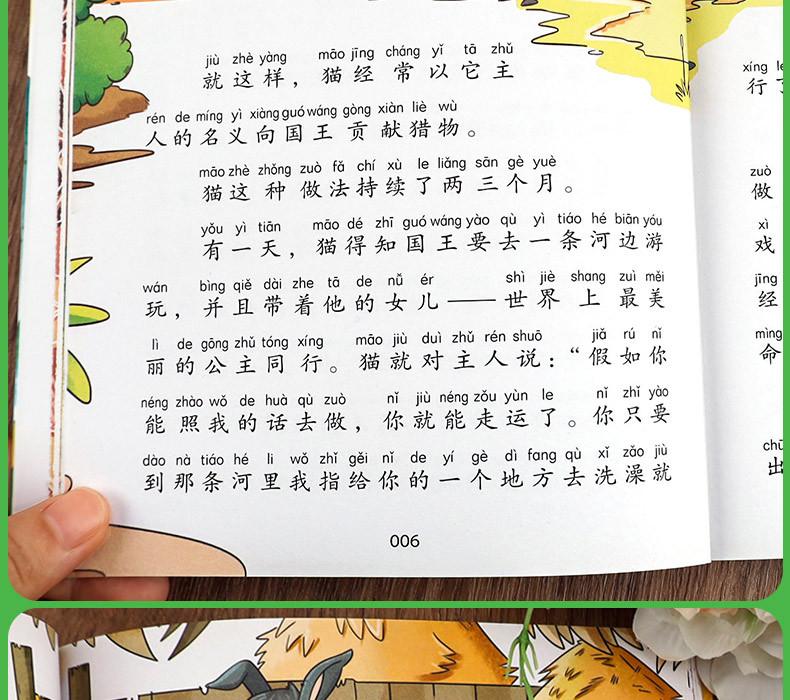 jiù zhè yàng māo jīng cháng yǐ tā zhǔ
就这样，猫经常以它主
rén de míng yì xiàng guó wáng gòng xiàn liè wù
人的名义向国王贡献猎物。
māo zhè zhǒng zuò fǎ chí xù le liǎng sān gè yuè
猫这种做法持续了两三个月。
yǒu yì tiān māo dé zhī guó wáng yào qù yì tiáo hé biān yóu
有一天，猫得知国王要去一条河边游
wán bìng qiě dài zhe tā de nǚ ér shì jiè shang zuì měi
玩，并且带着他的女儿——世界上最美
lì de gōng zhǔ tóng xíng māo jiù duì zhǔ rén shuō jiǎ rú nǐ
丽的公主同行。猫就对主人说：“假如你
néng zhào wǒ de huà qù zuò nǐ jiù néng zǒu yùn le nǐ zhǐ yào
能照我的话去做，你就能走运了。你只要
dào nà tiáo hé li wǒ zhǐ gěi nǐ de yí gè dì fang qù xǐ zǎo jiù
到那条河里我指给你的一个地方去洗澡就
006
xíng
行
zuò
做
xì
戏
jīng
经
mìng
命
chū
出